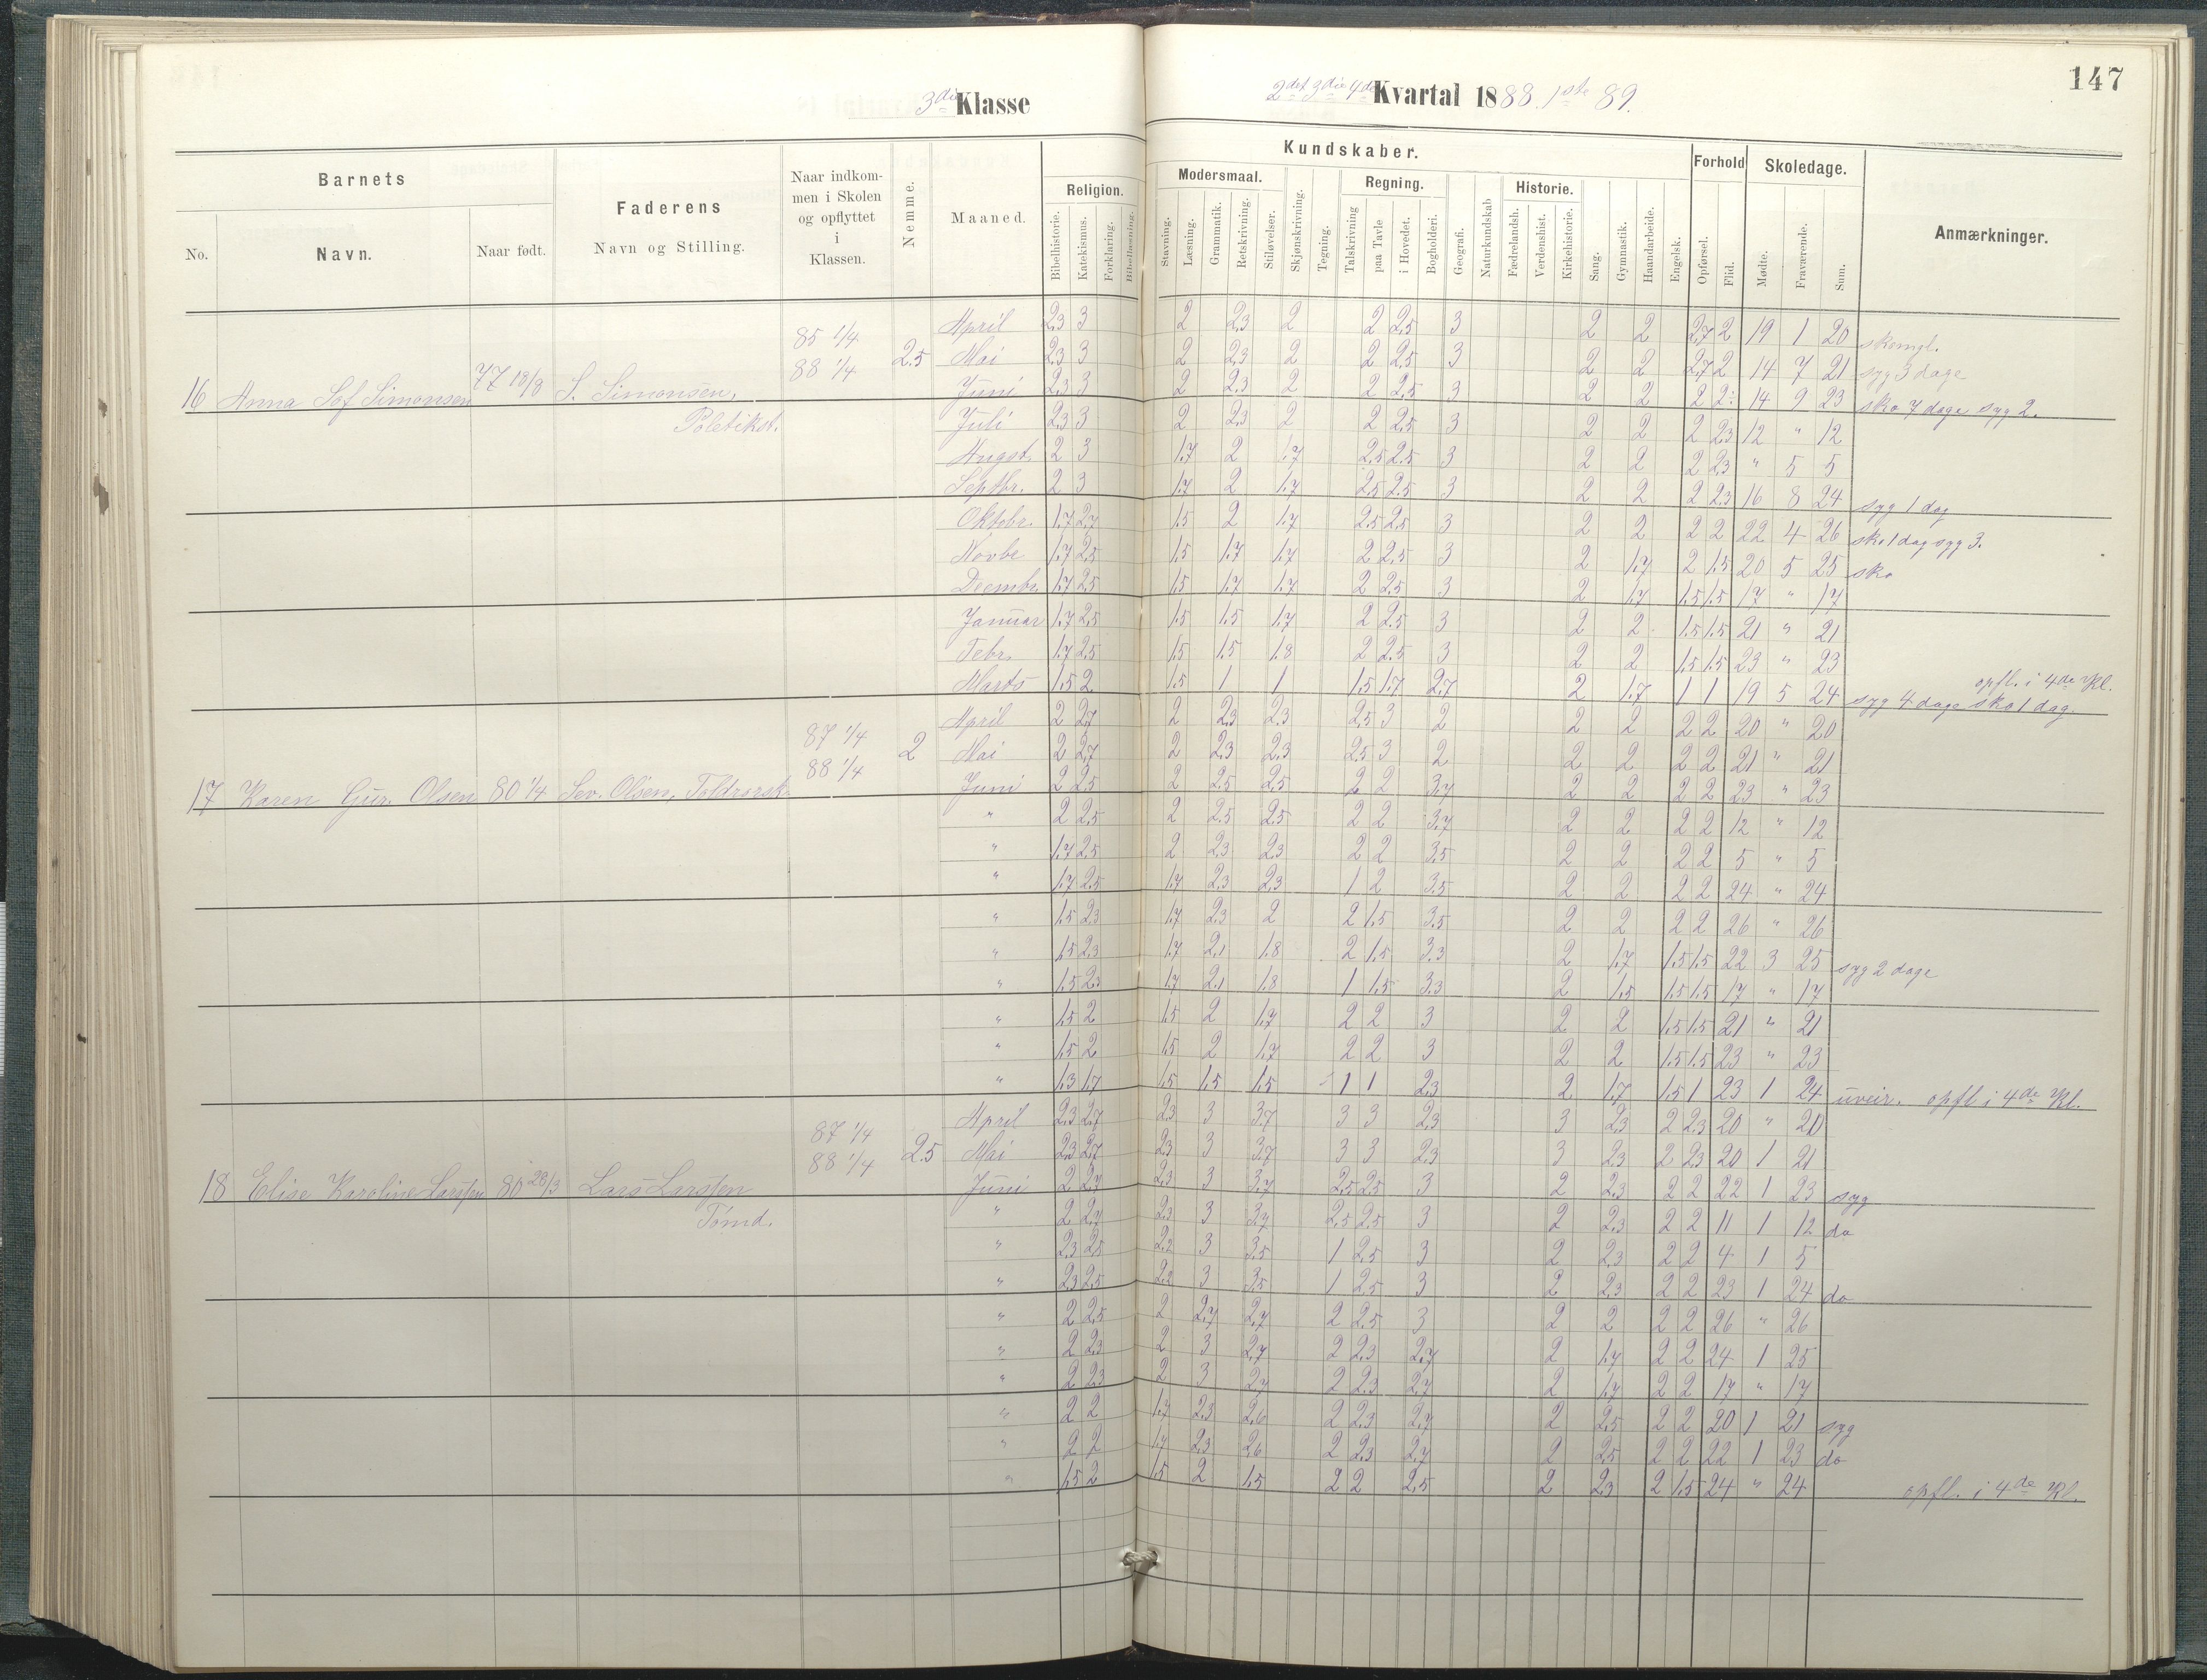 147
3die Klasse
2det 3die 4de Kvartal 1888. 1ste 89.
Barnets
No.
Navn.
Naar født.
Faderens
Navn og Stilling.
Naar indkom-
men i Skolen
og opflyttet
i
Klassen.
Nemme.
Maaned.
Kundskaber.
Religion.
Bibelhistorie.
Katekismus.
Forklaring.
Bibellæsning.
Modersmaal.
Stavning.
Læsning.
Grammatik.
Retskrivning.
Stiløvelser.
Skjønskrivning.
Tegning.
Regning.
Talskrivning
paa Tavle
i Hovedet.
Bogholderi.
Geografi.
Naturkundskab
Historie.
Fædrelandsh.
Verdenshist.
Kirkehistorie.
Sang.
Gymnastik.
Haandarbeide.
Engelsk.
Forhold
Opførsel.
Flid.
Skoledage.
Mødte.
Fraværende.
Sum.
Anmærkninger.
16 Anna Sof Simonsen 77 18/8 S. Simonsen, Poletikst. 85 1/4 88 1/4 2.5
April 2.3 3 2 2.3 2 2 2.5 3 2 2 2.7 2 19 1 20 skomgl.
Mai 2.3 3 2 2.3 2 2 2.5 3 2 2 2.7 2 14 7 21 syg 3 dage
Juni 2.3 3 2 2.3 2 2 2.5 3 2 2 2 2 14 9 23 sko 7 dage syg 2.
Juli 2.3 3 2 2.3 2 2 2.5 3 2 2 2 2.3 12 " 12
Augst. 2 3 1.7 2 1.7 2.5 2.5 3 2 2 2 2.3 " 5 5
Septbr. 2 3 1.7 2 1.7 2.5 2.5 3 2 2 2 2.3 16 8 24 syg 1 dag
Oktobr. 1.7 2.7 1.5 2 1.7 2.5 2.5 3 2 2 2 2 22 4 26 sko 1 dag syg 3.
Novbe 1.7 2.5 1.5 1.7 1.7 2 2.5 3 2 1.7 2 1.5 20 5 25 sko
Decembr. 1.7 2.5 1.5 1.7 1.7 2 2.5 3 2 1.7 1.5 1.5 17 " 17
Januar 1.7 2.5 1.5 1.5 1.7 2 2.5 3 2 2 1.5 1.5 21 " 21
Febr. 1.7 2.5 1.5 1.5 1.8 2 2.5 3 2 2 1.5 1.5 23 " 23
Marts 1.5 2 1.5 1 1 1.5 1.7 2.7 2 1.7 1 1 19 5 24 syg 4 dage sko 1 dag. opfl. i 4de Kl.
17 Karen Gur. Olsen 80 1/4 Sev. Olsen, Toldrorsk. 87 1/4 88 1/4 2
April 2 2.7 2 2.3 2.3 2.5 3 2 2 2 2 2 20 " 20
Mai 2 2.7 2 2.3 2.3 2.5 3 2 2 2 2 2 21 " 21
Juni 2 2.5 2 2.5 2.5 2 2 3.7 2 2 2 2 23 " 23
" 2 2.5 2 2.5 2.5 2 2 3.7 2 2 2 2 12 " 12
" 1.7 2.5 2 2.3 2.3 2 2 3.5 2 2 2 2 5 " 5
" 1.7 2.5 1.7 2.3 2.3 1 2 3.5 2 2 2 2 24 " 24
" 1.5 2.3 1.7 2.3 2 2 1.5 3.5 2 2 2 2 26 " 26
" 1.5 2.3 1.7 2.1 1.8 2 1.5 3.3 2 1.7 1.5 1.5 22 3 25 syg 2 dage
" 1.5 2.3 1.7 2.1 1.8 1 1.5 3.3 2 1.5 1.5 1.5 17 " 17
" 1.5 2 1.5 2 1.7 2 2 3 2 2 1.5 1.5 21 " 21
" 1.5 2 1.5 2 1.7 2 2 3 2 2 1.5 1.5 23 " 23
" 1.3 1.7 1.5 1.5 1.5 1 1 2.3 2 1.7 1.5 1 23 1 24 uveir. opfl i 4de Kl.
18 Elise Karoline Larssen 80 28/3 Lars Larssen Tømd. 87 1/4 88 1/4 2.5
April 2.3 2.7 2.3 3 3.7 3 3 2.3 3 2.3 2 2.3 20 " 20
Mai 2.3 2.7 2.3 3 3.7 3 3 2.3 3 2.3 2 2.3 20 1 21
Juni 2 2.7 2.3 3 3.7 2.5 2.5 3 2 2.3 2 2 22 1 23 syg
" 2 2.7 2.3 3 3.7 2.5 2.5 3 2 2.3 2 2 11 1 12 do
" 2.3 2.5 2.2 3 3.5 1 2.5 3 2 2.3 2 2 4 1 5
" 2.3 2.5 2.2 3 3.5 1 2.5 3 2 2.3 2 2 23 1 24 do
" 2 2.5 2 2.7 2.7 2 2.5 3 2 2 2 2 26 " 26
" 2 2.3 2 3 2.7 2 2.3 2.7 2 1.7 2 2 24 1 25
" 2 2.3 2 3 2.7 2 2.3 2.7 2 1.7 2 2 17 " 17
" 2 2 1.7 2.3 2.6 2 2.3 2.7 2 2.5 2 2 20 1 21 syg
" 2 2 1.7 2.3 2.6 2 2.3 2.7 2 2.5 2 2 22 1 23 do
" 1.5 2 1.5 2 1.5 2 2 2.5 2 2.3 2 1.5 24 " 24 opfl. i 4de Kl.